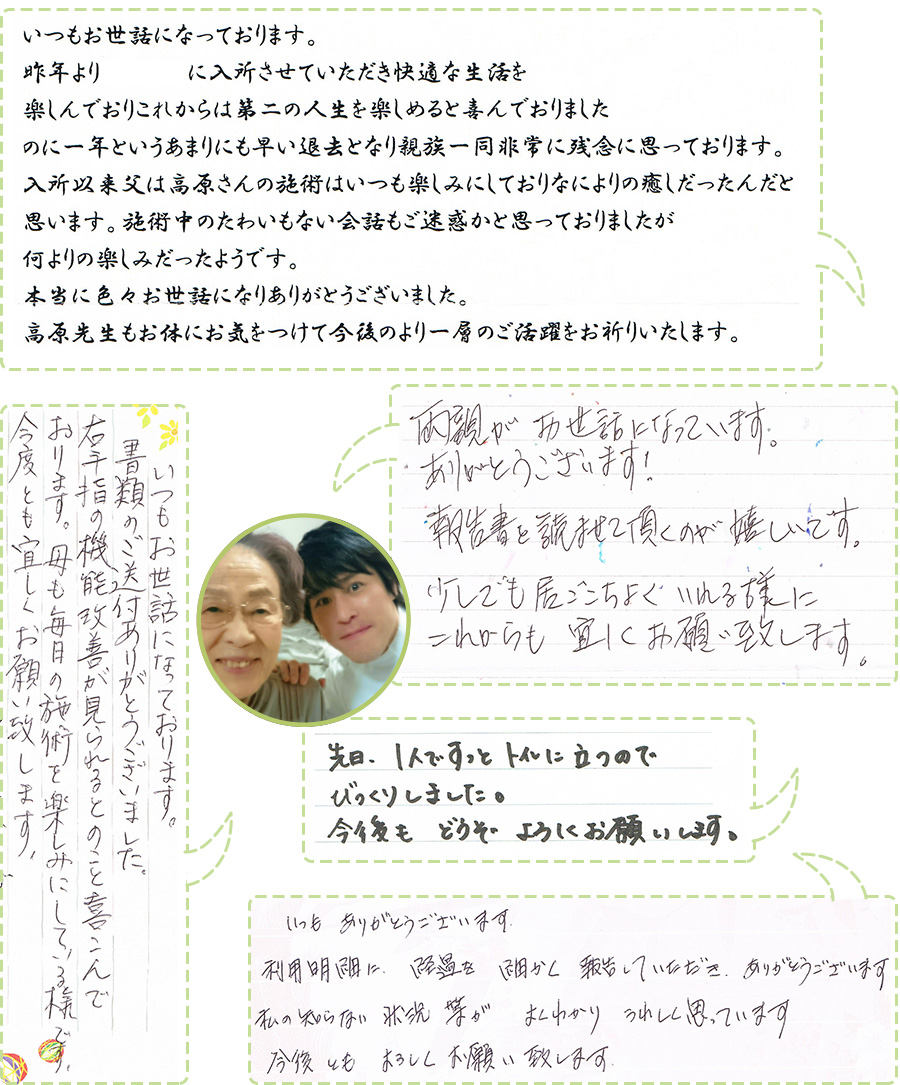 いつもお世話になっております。
昨年より　　　　に入所させていただき快適な生活を
楽しんでおりこれからは第二の人生を楽しめると喜んでおりました
のに一年というあまりにも早い退去となり親族一同非常に残念に思っております。
入所以来父は高原さんの施術はいつも楽しみにしておりなによりの癒しだったんだと
思います。施術中のたわいもない会話もご迷惑かと思っておりましたが
何よりの楽しみだったようです。
本当に色々お世話になりありがとうございました。
高原先生もお体にお気をつけて今後のより一層のご活躍をお祈りいたします。
両親が お世話になっています。
ありがとうございます!
報告書を読ませて頂くのが嬉しいです。
少しでも居ごこちよくいれる様に
これからも 宜しくお願い致します。
いつもお世話になっております。
書類のご送付ありがとうございました。
右手指の機能改善が見られるとのこと喜こんで
おります。母も毎日の施術を楽しみにしている様です。
今度とも宜しくお願い致します。
先日、1人ですっとトイレに立つので
びっくりしました。
今後も どうぞ よろしくお願いします。
いつも ありがとうございます。
利用明細に、経過を 細かく 報告していただき、ありがとうございます
私の知らない 状況 等が よくわかり うれしく思っています
今後とも よろしく お願い致します。